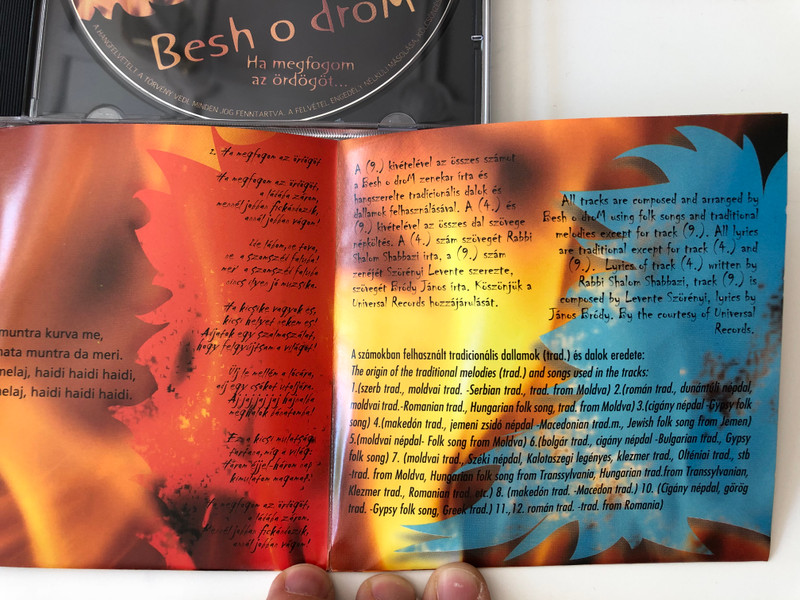 Besh o droM
Ha megfogom
az ördögöt...
A HANGFELVÉTELT A TÖRVÉNY VÉDI. MINDEN JOG FENNTARTVA. A FELVÉTEL ENGEDÉLY NÉLKÜLI MÁSOLÁSA,
muntra kurva me,
nata muntra da meri.
nelaj, haidi haidi haidi,
elaj, haidi haidi haidi.
2. Ha megfogom az ördögöt
Ha megfogom az ördögöt,
a ládába zárom,
mennél jobban ficánkozik,
annál jobban vágom!
Ha kicsike vagyok és,
kicsi helyet veken es!
Adjatok egy szalmaszálat,
hogy felgyújtsam a világot!
Ha megfogom az ördögöt,
a ládába zárom,
mennél jobban ficánkozik,
annál jobban vágom!
A (9.) kivételével az összes számot
a Besh o droM zenekar írta és
hangszerelte tradicionális dalok és
dallamok felhasználásával. A (4.) és
(9.) kivételével az összes dal szövege
népköltés. A (4.) szám szövegét Rabbi
Shalom Shabbazi írta, a (9.) szám
zenéjét Szörényi Levente szerezte,
szövegét Bródy János írta. Köszönjük a
Universal Records hozzájárulását.
All tracks are composed and arranged by
Besh o droM using folk songs and traditional
melodies except for track (9.). All lyrics
are traditional except for track (4.) and
(9.). Lyrics of track (4.) written by
Rabbi Shalom Shabbazi, track (9.) is
composed by Levente Szörényi, lyrics by
János Bródy. By the courtesy of Universal
Records.
A számokban felhasznált tradicionális dallamok (trad.) és dalok eredete:
The origin of the traditional melodies (trad.) and songs used in the tracks:
1.(szerb trad., moldvai trad. -Serbian trad., trad. from Moldva) 2.(román trad., dunántúli népdal,
moldvai trad.-Romanian trad., Hungarian folk song, trad. from Moldva) 3.(cigány népdal -Gypsy folk
song) 4.(makedón trad., jemeni zsidó népdal -Macedonian trad.m., Jewish folk song from Jemen)
5.(moldvai népdal- Folk song from Moldva) 6.(bolgár trad., cigány népdal -Bulgarian trad., Gypsy
folk song) 7. (moldvai trad., Széki népdal, Kalotaszegi legényes, klezmer trad., Olténiai trad., stb
-trad. from Moldva, Hungarian folk song from Transsylvania, Hungarian trad.from Transsylvanian,
Klezmer trad., Romanian trad. etc.) 8. (makedón trad. -Macedon trad.) 10. (Cigány népdal, görög
trad. -Gypsy folk song, Greek trad.) 11.,12. román trad. -trad. from Romania)